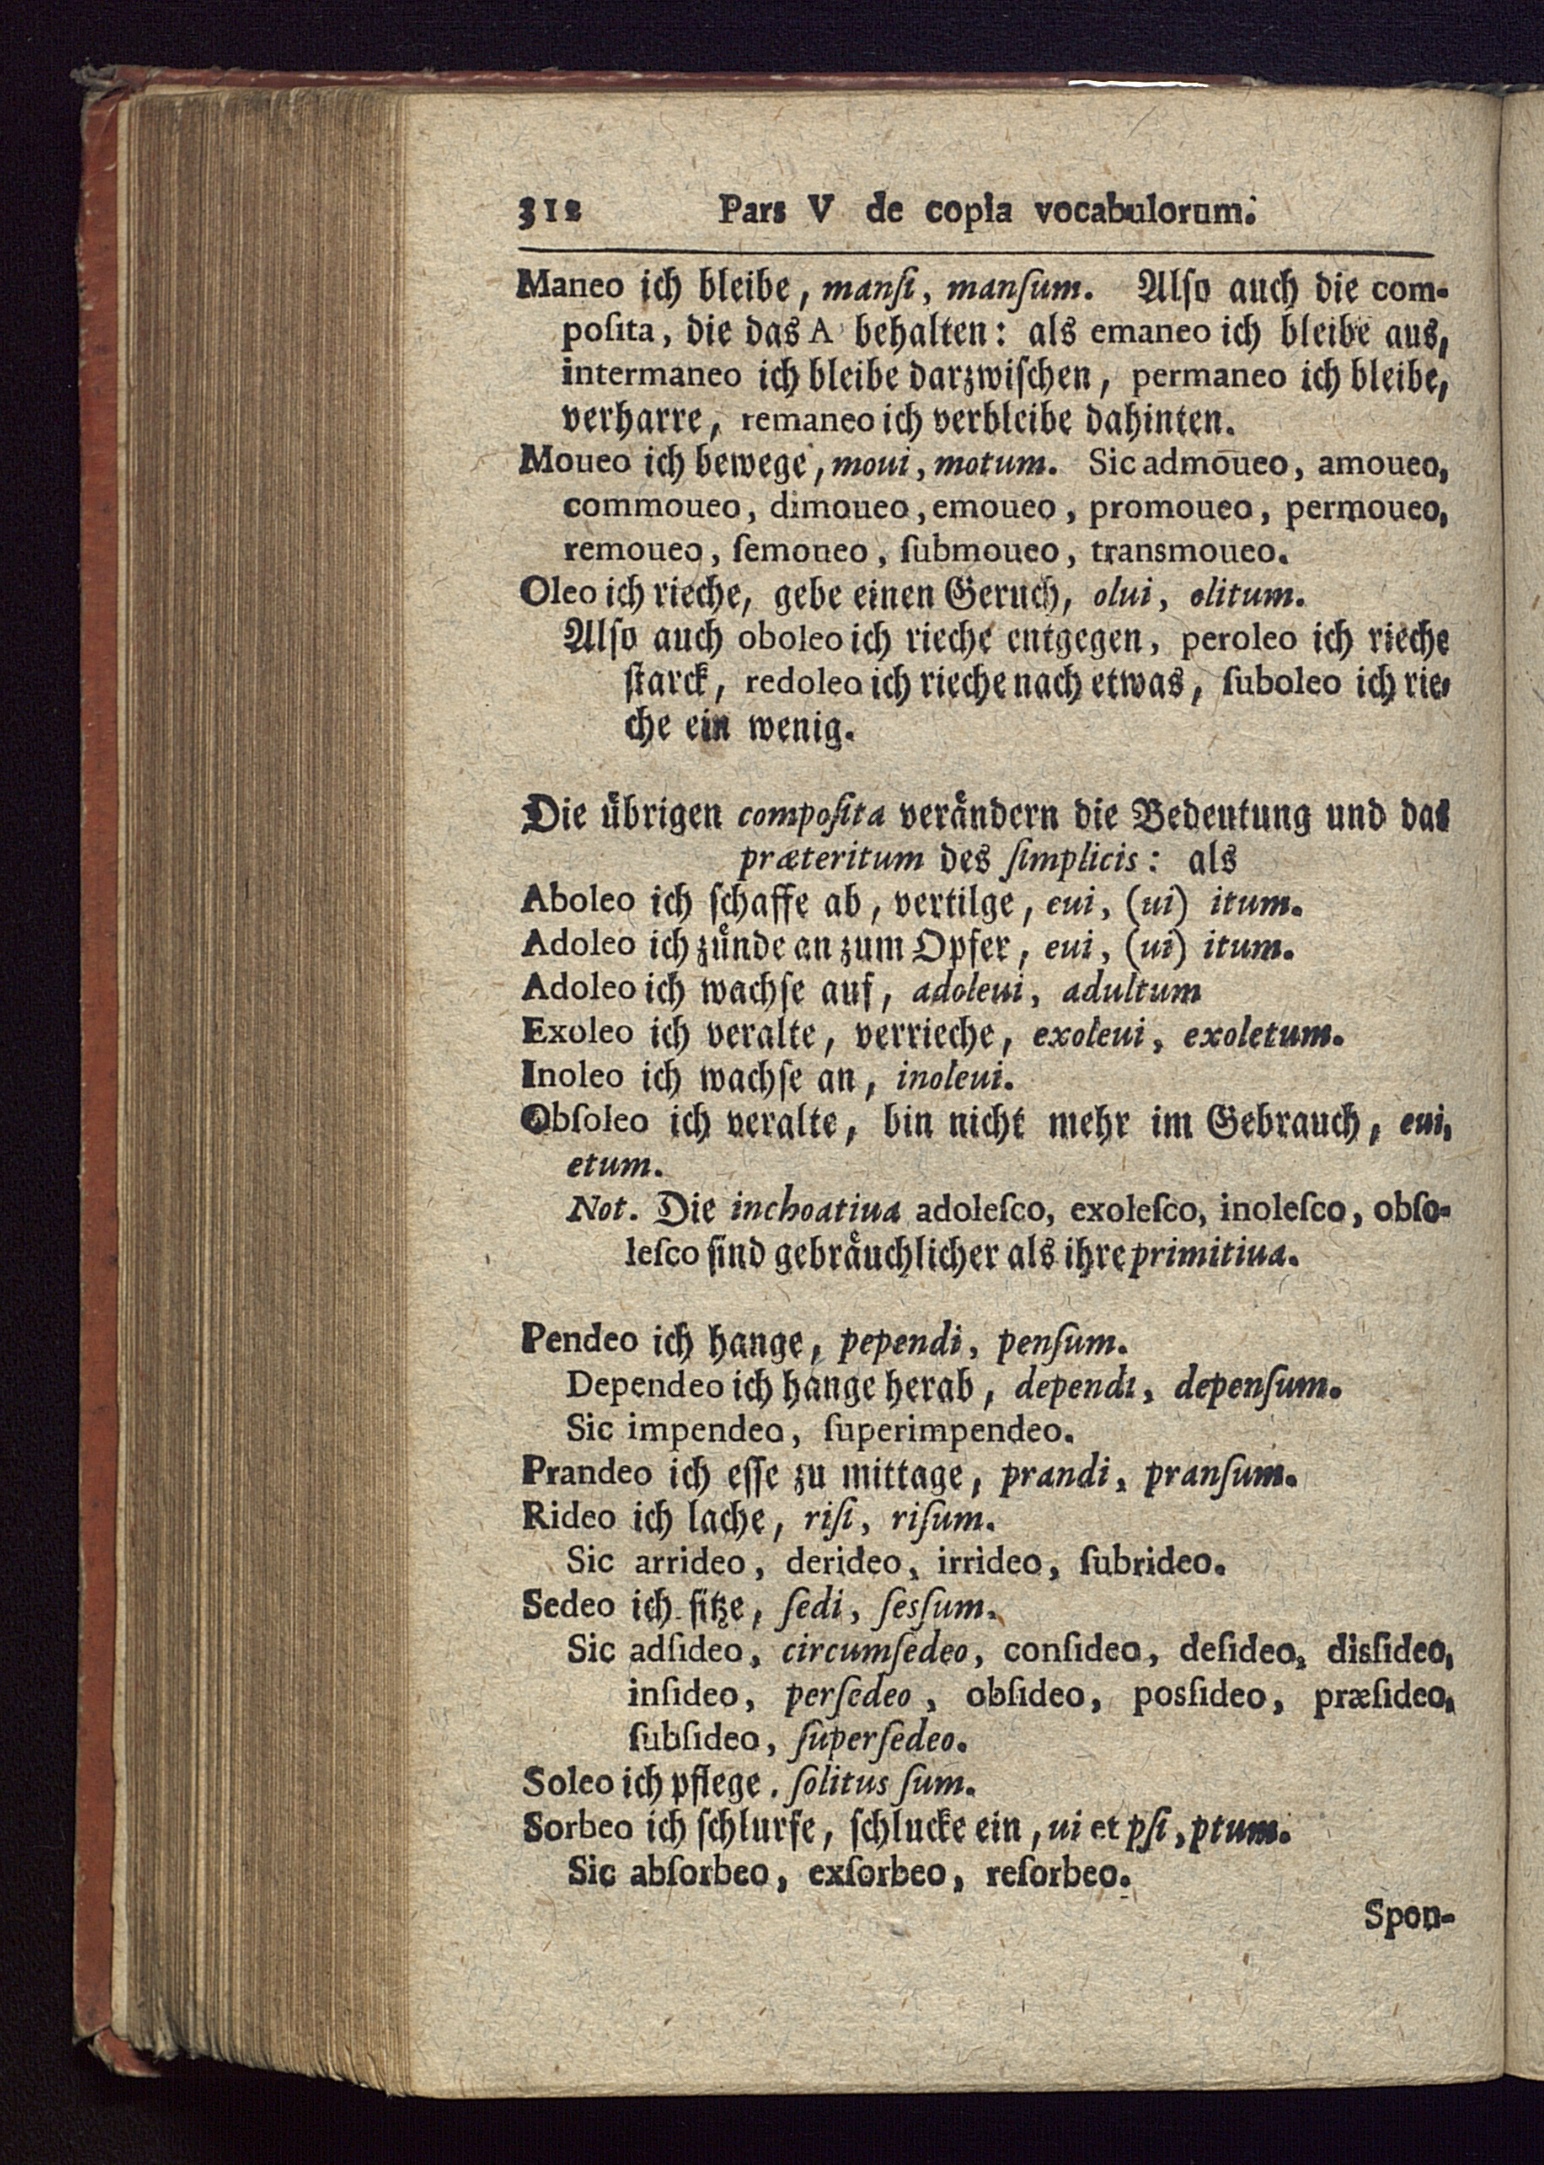 312 Pars V de copia vocabulorum.
Maneo ich bleibe, manſi, manſum. Alſo auch die com-
poſita, die das A behalten: als emaneo ich bleibe aus,
intermaneo ich bleibe darzwiſchen, permaneo ich bleibe,
verharre, remaneo ich verbleibe dahinten.
Moueo ich bewege, moui, motum. Sic admoueo, amoueo,
commoueo, dimoueo, emoueo, promoueo, permoueo,
remoueo, ſemoueo, ſubmoueo, transmoueo.
Oleo ich rieche, gebe einen Geruch, olui, olitum.
Alſo auch oboleo ich rieche entgegen, peroleo ich rieche
ſtarck, redoleo ich rieche nach etwas, ſuboleo ich rie-
che ein wenig.
Die uͤbrigen compoſita veraͤndern die Bedeutung und das
præteritum des ſimplicis: als
Aboleo ich ſchaffe ab, vertilge, eui, (ui) itum.
Adoleo ich zuͤnde an zum Opfer, eui, (ui) itum.
Adoleo ich wachſe auf, adoleui, adultum
Exoleo ich veralte, verrieche, exoleui, exoletum.
Inoleo ich wachſe an, inoleui.
Obſoleo ich veralte, bin nicht mehr im Gebrauch, eui,
etum.
Not. Die inchoatiua adoleſco, exoleſco, inoleſco, obſo-
leſco ſind gebraͤuchlicher als ihre primitiua.
Pendeo ich hange, pependi, penſum.
Dependeo ich hange herab, dependi, depenſum.
Sic impendeo, ſuperimpendeo.
Prandeo ich eſſe zu mittage, prandi, pranſum.
Rideo ich lache, riſi, riſum.
Sic arrideo, derideo, irrideo, ſubrideo.
Sedeo ich ſitze, ſedi, ſesſum.
Sic adſideo, circumſedeo, conſideo, deſideo, disſideo,
inſideo, perſedeo, obſideo, posſideo, præſideo,
ſubſideo, ſuperſedeo.
Soleo ich pflege. ſolitus ſum.
Sorbeo ich ſchlurfe, ſchlucke ein, ui et pſi, ptum.
Sic abſorbeo, exſorbeo, reſorbeo.
Spon-